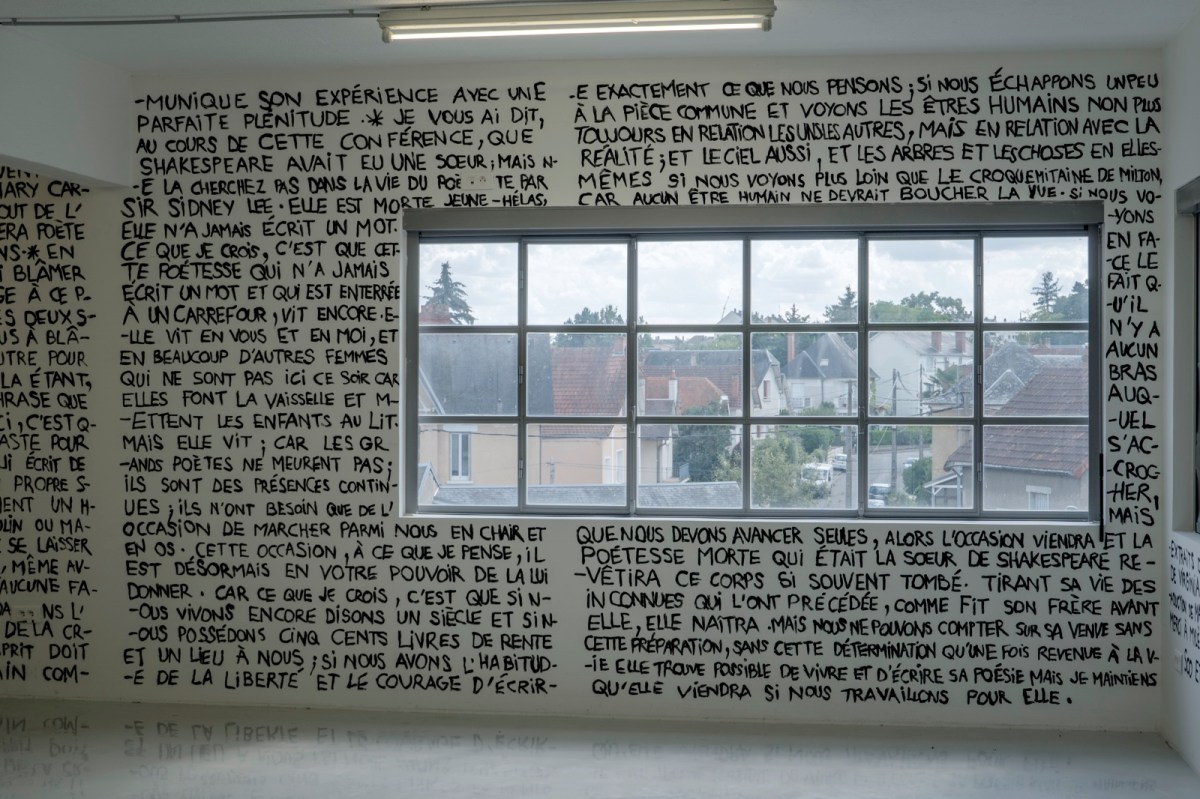 MARY CAR-
OUT DE L'
ERA POÈTE
NS.* EN
I BLÂMER
GE À CE P-
ES DEUX S-
US À BLÂ-
UTRE POUR
LA ÉTANT,
HRASE QUE
CI, C'EST Q-
ASTE POUR
UI ÉCRIT DE
PROPRE S-
MENT UN H-
OLIN OU MA-
SE LAISSER
, MÊME AV-
'AUCUNE FA-
NS L'
DE LA CR-
PRIT DOIT
AIN COM-
-MUNIQUE SON EXPÉRIENCE AVEC UNE
PARFAITE PLÉNITUDE.* JE VOUS AI DIT,
AU COURS DE CETTE CONFÉRENCE, QUE
SHAKESPEARE AVAIT EU UNE SŒUR; MAIS N-
-E LA CHERCHEZ PAS DANS LA VIE DU POÈTE PAR
SIR SIDNEY LEE. ELLE EST MORTE JEUNE-HÉLAS,
ELLE N'A JAMAIS ÉCRIT UN MOT.
CE QUE JE CROIS, C'EST QUE CET-
TE POÉTESSE QUI N'A JAMAIS
ÉCRIT UN MOT ET QUI EST ENTERRÉE
À UN CARREFOUR, VIT ENCORE. E-
-LLE VIT EN VOUS ET EN MOI, ET
EN BEAUCOUP D'AUTRES FEMMES
QUI NE SONT PAS ICI CE SOIR CAR
ELLES FONT LA VAISSELLE ET M-
-ETTENT LES ENFANTS AU LIT.
MAIS ELLE VIT; CAR LES GR
-ANDS POÈTES NE MEURENT PAS;
ILS SONT DES PRÉSENCES CONTIN-
UES; ILS N'ONT BESOIN QUE DE L'
OCCASION DE MARCHER PARMI NOUS EN CHAIR ET
EN OS. CETTE OCCASION, À CE QUE JE PENSE, IL
EST DÉSORMAIS EN VOTRE POUVOIR DE LA LUI
DONNER. CAR CE QUE JE CROIS, C'EST QUE SI N-
-OUS VIVONS ENCORE DISONS UN SIÈCLE ET SI N-
-OUS POSSÉDONS CINQ CENTS LIVRES DE RENTE
ET UN LIEU À NOUS; SI NOUS AVONS L'HABITUD-
-E DE LA LIBERTÉ ET LE COURAGE D'ÉCRIR-
-E EXACTEMENT CE QUE NOUS PENSONS; SI NOUS ÉCHAPPONS UN PEU
À LA PIÈCE COMMUNE ET VOYONS LES ÊTRES HUMAINS NON PLUS
TOUJOURS EN RELATION LES UNS LES AUTRES, MAIS EN RELATION AVEC LA
RÉALITÉ; ET LE CIEL AUSSI, ET LES ARBRES ET LES CHOSES EN ELLES-
MÊMES SI NOUS VOYONS PLUS LOIN QUE LE CROQUEMITAINE DE MILTON,
CAR AUCUN ÊTRE HUMAIN NE DEVRAIT BOUCHER LA VUE. SI NOUS VO-
-YONS
EN FA-
-CE LE
FAIT Q-
-U'IL
N'Y A
AUCUN
BRAS
AUQ-
-UEL
S'AC-
-CROC-
-HER,
MAIS
QUE NOUS DEVONS AVANCER SEULES, ALORS L'OCCASION VIENDRA ET LA
POÉTESSE MORTE QUI ÉTAIT LA SŒUR DE SHAKESPEARE RE-
-VÊTIRA CE CORPS SI SOUVENT TOMBÉ. TIRANT SA VIE DES
INCONNUES QUI L'ONT PRÉCÉDÉE, COMME FIT SON FRÈRE AVANT
ELLE, ELLE NAÎTRA. MAIS NOUS NE POUVONS COMPTER SUR SA VENUE SANS
CETTE PRÉPARATION, SANS CETTE DÉTERMINATION QU'UNE FOIS REVENUE À LA V-
-IE ELLE TROUVE POSSIBLE DE VIVRE ET D'ÉCRIRE SA POÉSIE MAIS JE MAINTIENS
QU'ELLE VIENDRA SI NOUS TRAVAILLONS POUR ELLE.
-EXTRAITS